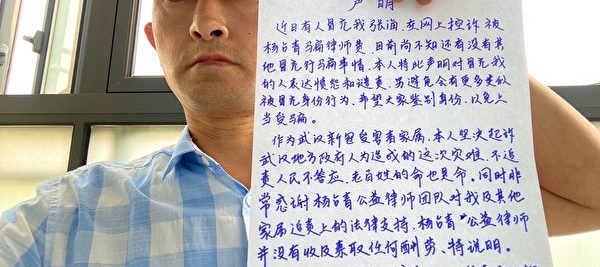 声明
近日有人冒充我张海，在网上控诉被
杨占青骗律师费，目前尚不知还有没有其
他冒充行骗事情．本人特此声明对冒充我
的人表达愤怒和谴责．另避免会有更多类似
被冒充身份行为，希望大家鉴别身份，以免上
当受骗．
作为武汉新冠受害者家属，本人坚决起诉
武汉地方政府人为造成的这次灾难，不追
责人民不答应，老百姓的命也是命．同时非
常感谢杨占青公益律师团队对我及其他
家属追责上的法律支持，杨占青“公益律师
并没有收及索取任何酬劳、特说明。